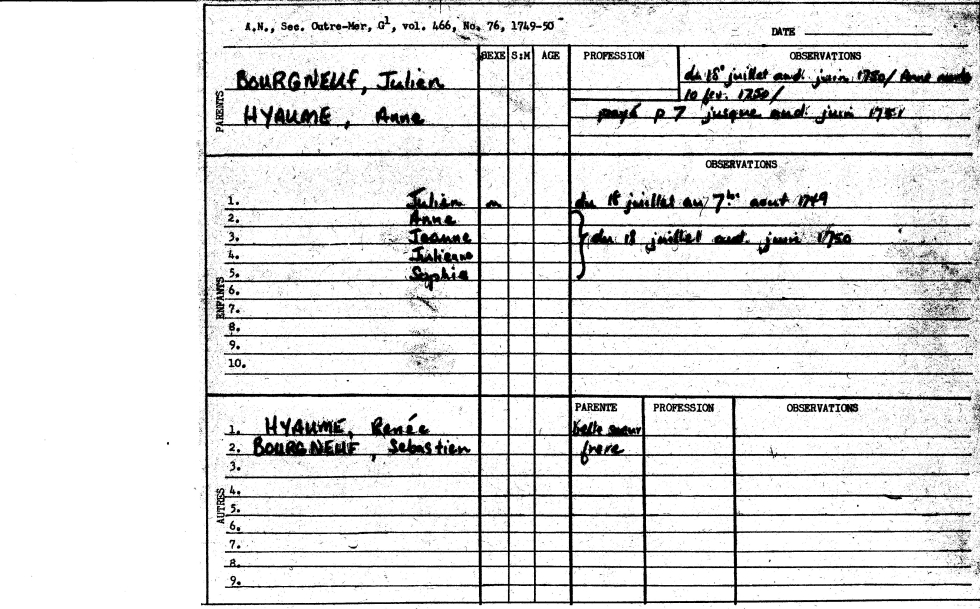 A.N., Sec. Outre-Mer, G¹, vol. 466, No. 76, 1749-50
DATE
SEXE S:M AGE PROFESSION OBSERVATIONS
PARENTS
BOURGNEUF, Julien
du 18 juillet aud. juin 1750/ Anne
10 fev. 1750/
HYAUME, Anne
payé p 7 jusque aud. juin 1751
OBSERVATIONS
ENFANTS
1. Julien m du 18 juillet au 7bre aout 1749
2. Anne
3. Jeanne du 18 juillet aud. juin 1750
4. Julienne
5. Sophie
6.
7.
8.
9.
10.
PARENTE PROFESSION OBSERVATIONS
AUTRES
1. HYAUME, Renée belle soeur
2. BOURGNEUF, Sebastien frere
3.
4.
5.
6.
7.
8.
9.